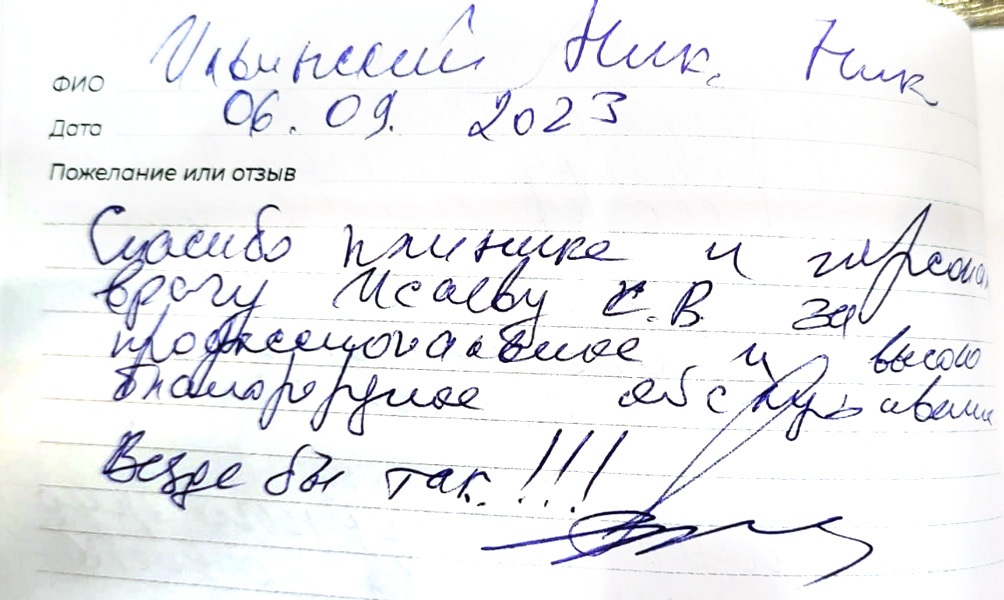 ФИО Ильинский Ник. Ник
Дата 06.09. 2023
Пожелание или отзыв
Спасибо клинике и персонал
врачу Исаеву С.В. за
профессиональное и высоко
благородное обслуживание
Везде бы так!!!